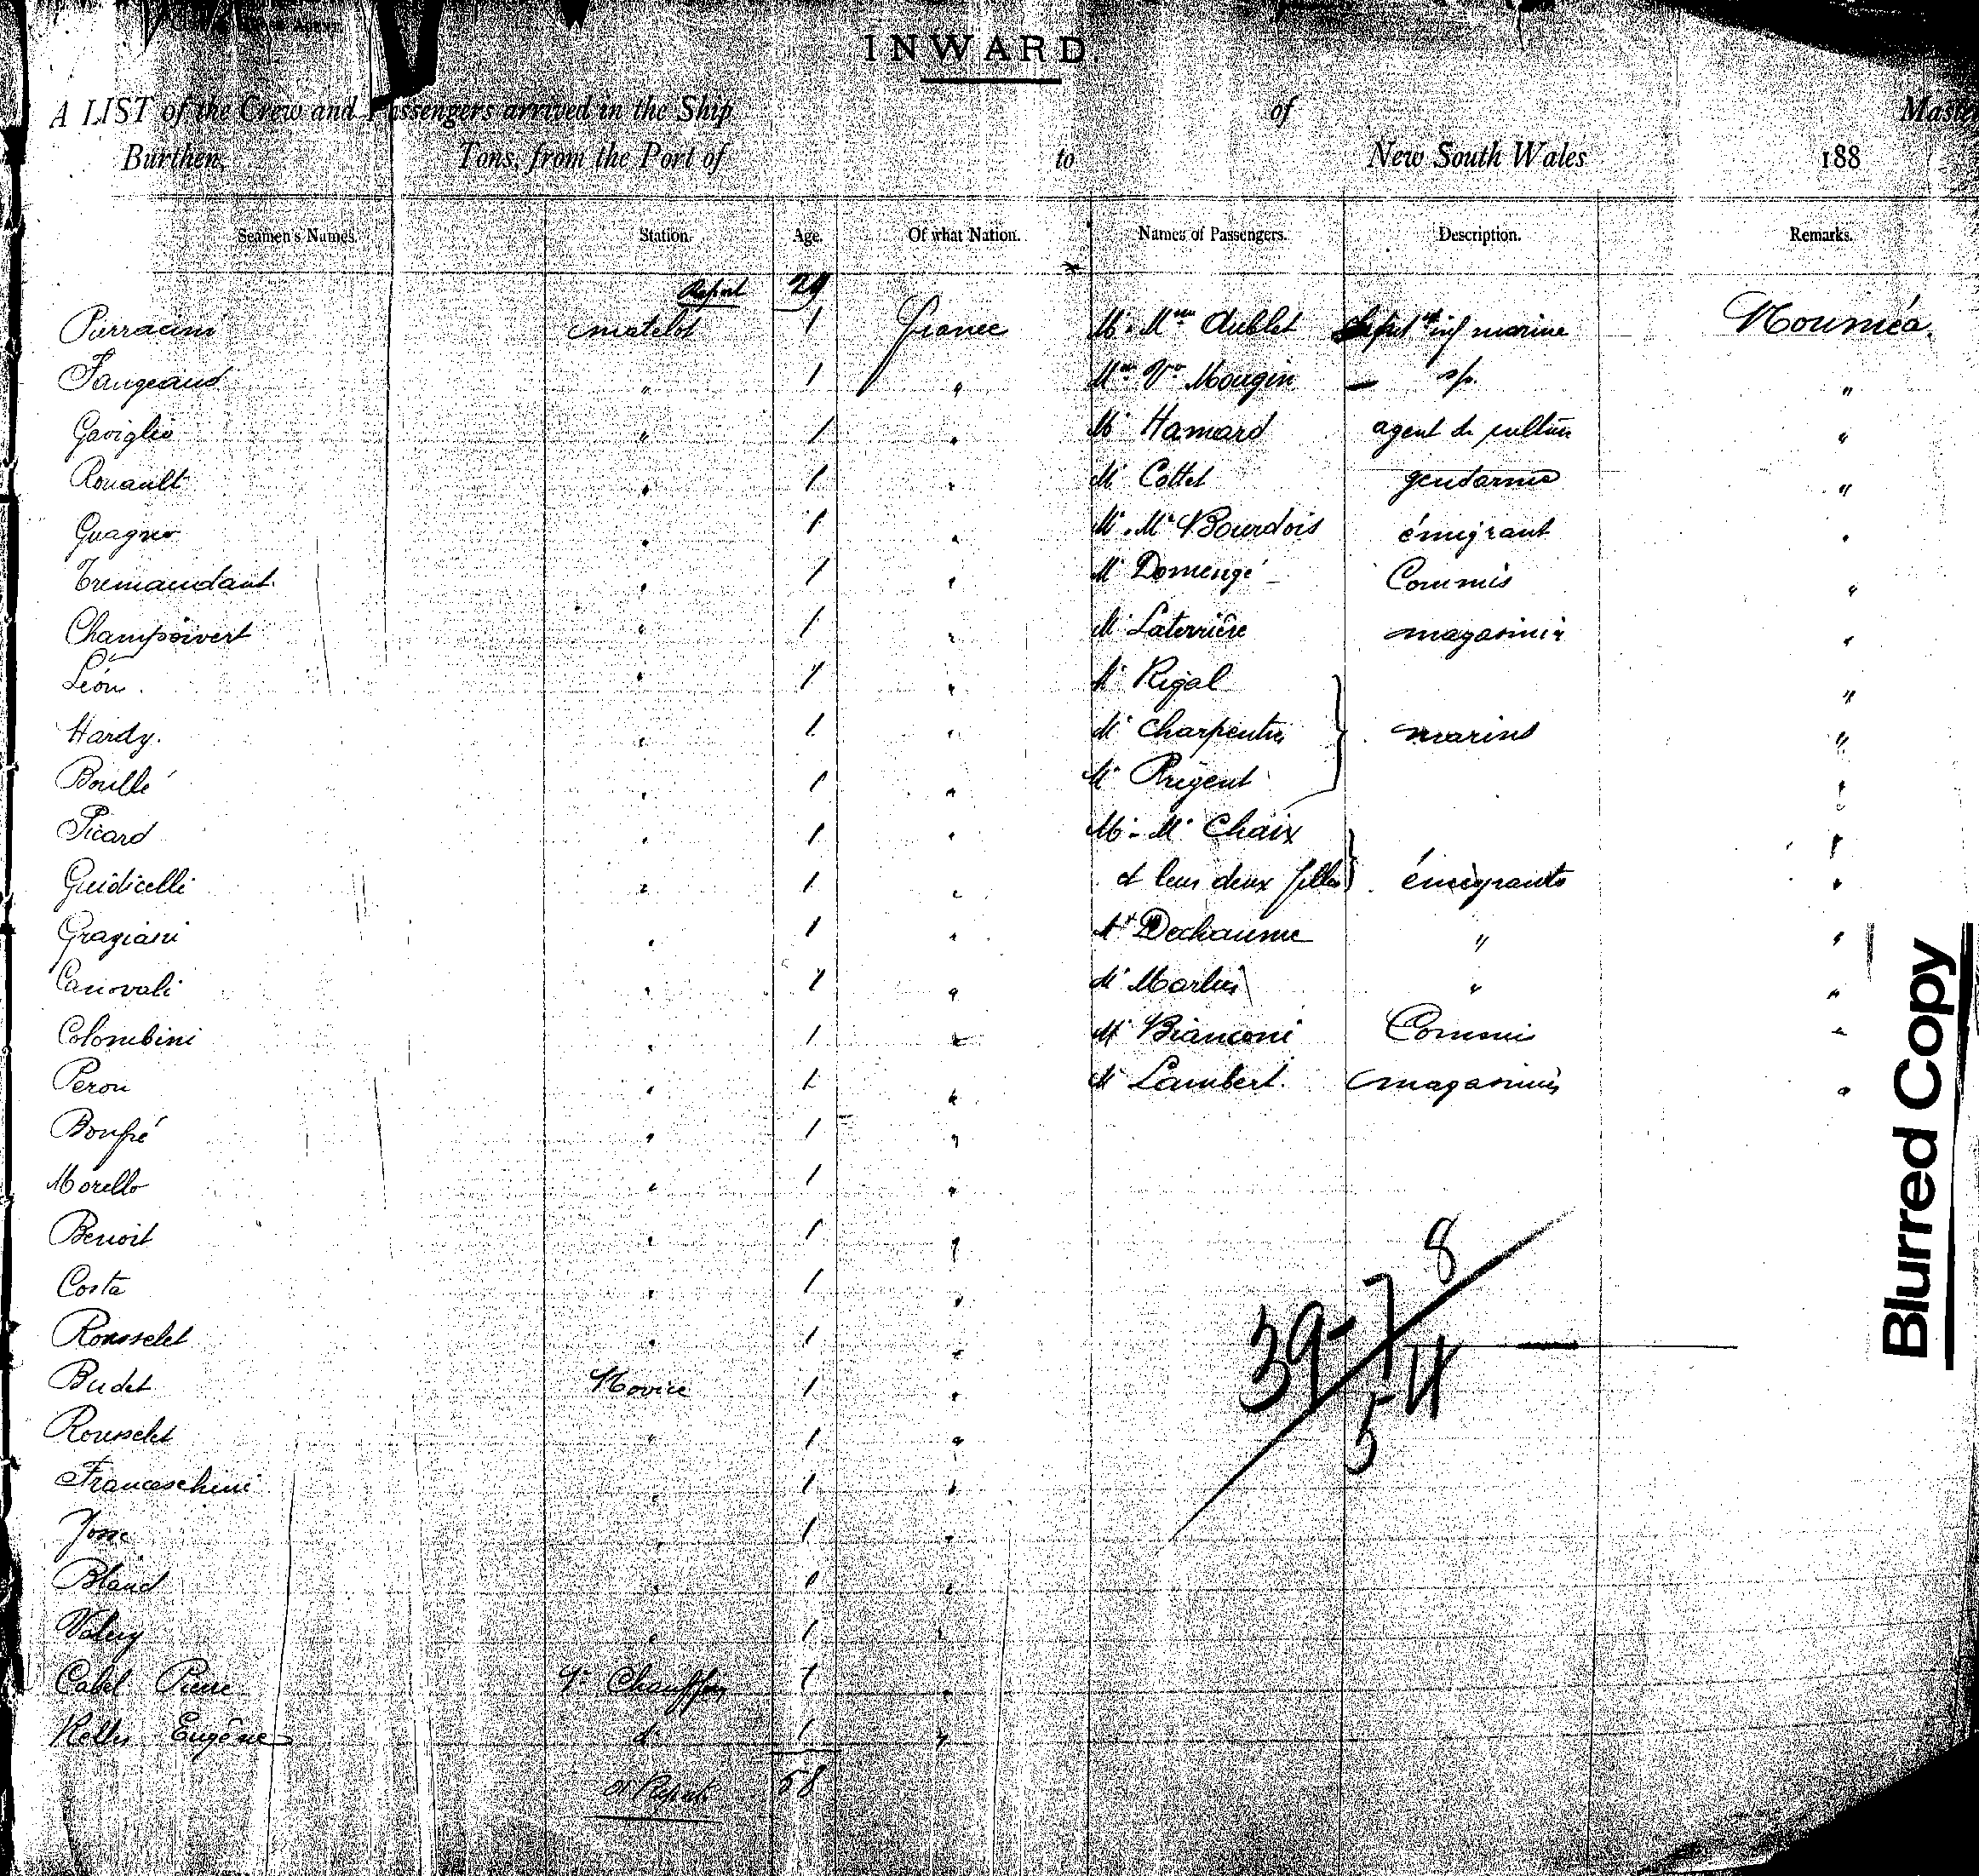 INWARD.
A LIST of the Crew and Passengers arrived in the Ship of Master
Burthen, Tons, from the Port of to New South Wales 188
Seamen's Names. Station. Age. Of what Nation. Names of Passengers. Description. Remarks.
Report 29
Pierracini matelot 1 france M. Mme Aublet inf marine Nouméa
Faugeaud " 1 " Mme Ve Mougin — " 
Gaviglio " 1 " Mr Hamard agent de culture "
Rouault " 1 " Mr Cottet gendarme "
Guagno " 1 " Mr. Me Bourdois émigrant "
Tremaudant " 1 " Mr Domengé Commis "
Champoivert " 1 " Mr Laterrière magasinier "
Léon " 1 " Mr Rigal "
Hardy. " 1 " Mr Charpentier marins "
Bouillé " 1 " Mr Prigent "
Picard " 1 " Mr. Me Chaix "
Guidicelli " 1 " et leurs deux filles émigrants "
Graziani " 1 " Dechaume " "
Canovali " 1 " Mr " "
Colombini " 1 " Mr Bianconi Commis "
Peron " 1 " Mr Lambert. magasinier "
1 "
Morello " 1 "
Benoit " 1 "
Costa " 1 "
Rousselet " 1 "
Budet Novice 1 "
Rousselet " 1 "
Franceschini " 1 "
" 1 "
Blaud " 1 "
Valery " 1 "
Pierre Chauffeur 1 "
Eugène do 1 "
58
8
39-7
54
Blurred Copy